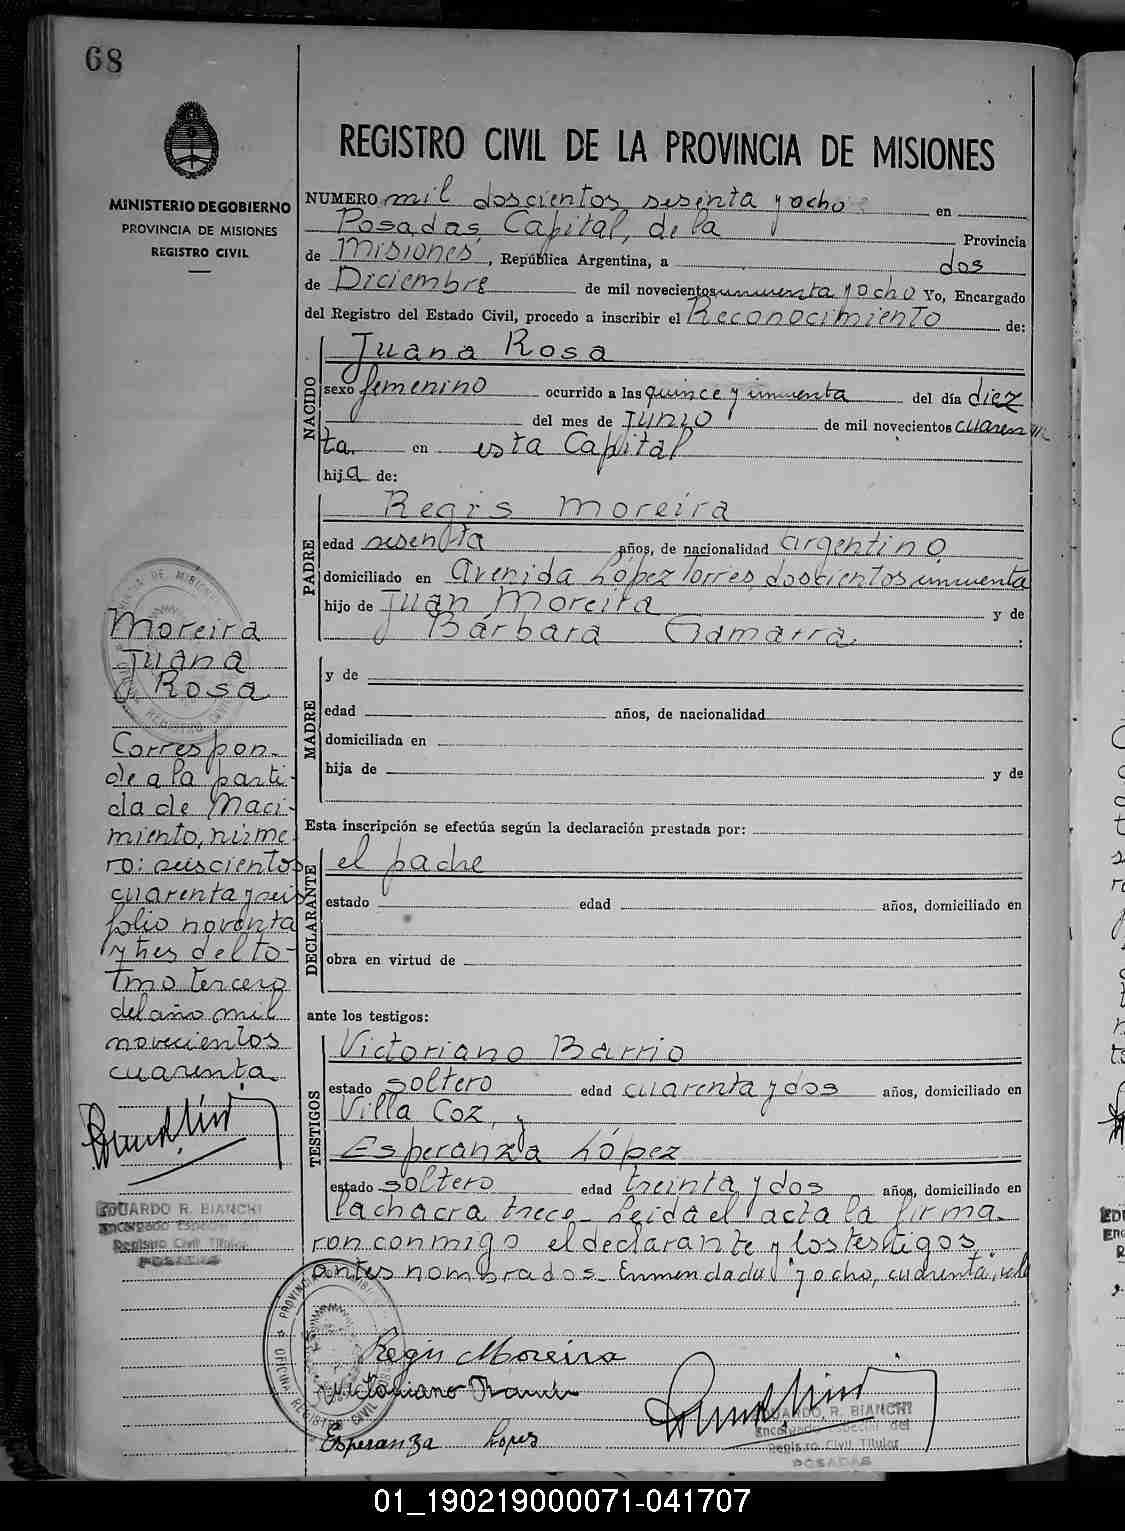 68
MINISTERIO DE GOBIERNO
PROVINCIA DE MISIONES
REGISTRO CIVIL
REGISTRO CIVIL DE LA PROVINCIA DE MISIONES
NUMERO mil doscientos sesenta y ocho en
Posadas, Capital, de la Provincia
de Misiones, República Argentina, a dos
de Diciembre de mil novecientos cincuenta y ocho Yo, Encargado
del Registro del Estado Civil, procedo a inscribir el Reconocimiento de:
NACIDO
Juana Rosa
sexo femenino ocurrido a las quince y cincuenta del día diez
del mes de Junio de mil novecientos cuaren
ta. en esta Capital
hija de:
PADRE
Regis Moreira
edad sesenta años, de nacionalidad argentino
domiciliado en Avenida López Torres, doscientos cincuenta
hijo de Juan Moreira y de
Barbara Gamarra. :
MADRE
y de
edad años, de nacionalidad
domiciliada en
hija de y de
Esta inscripción se efectúa según la declaración prestada por:
DECLARANTE
el padre
estado edad años, domiciliado en
obra en virtud de
ante los testigos:
TESTIGOS
Victoriano Barrio
estado soltero edad cuarenta y dos años, domiciliado en
Villa Coz, y
Esperanza López
estado soltero edad treinta y dos años, domiciliado en
la chacra trece - Leida el acta la firma-
ron conmigo el declarante y los testigos,
antes nombrados - Enmendado "y ocho, cuarenta, vale
Regis Moreira
Victoriano Barrio
Esperanza Lopes
EDUARDO R. BIANCHI
Encargado Especial del
Registro Civil Titular
POSADAS
Moreira
Juana
Rosa
Correspon-
de a la parti-
da de Naci-
miento, núme-
ro: seiscientos
cuarenta y seis
folio noventa
y tres del to-
mo tercero
del año mil
novecientos
cuarenta
EDUARDO R. BIANCHI
Encargado Especial del
Registro Civil Titular
POSADAS
01_190219000071-041707